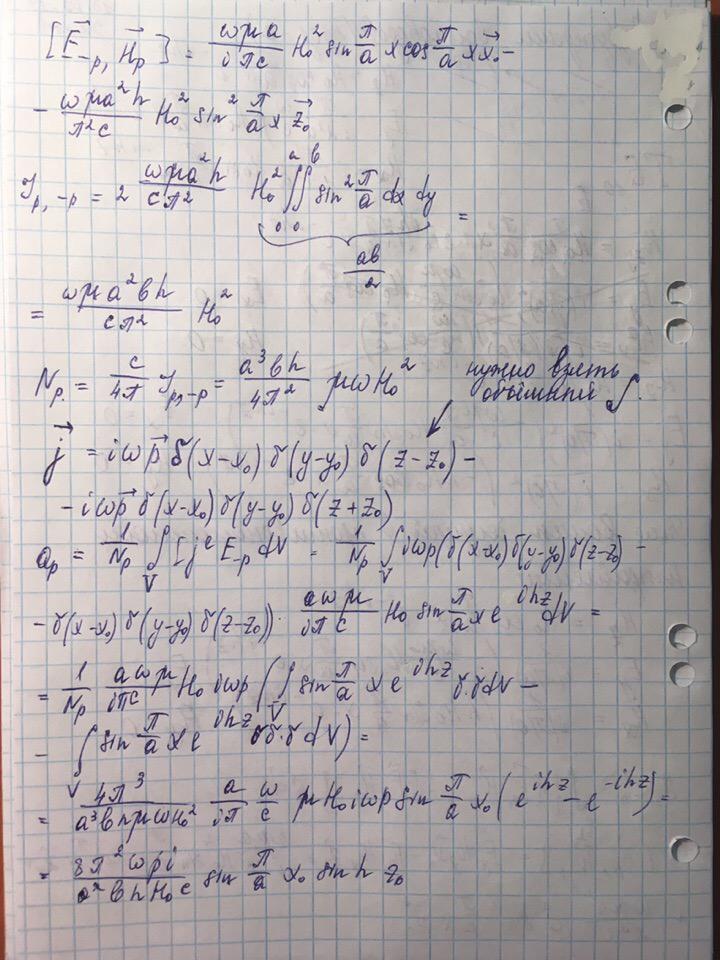 [E⃗₋p, H⃗p] = ωμa/iπc H₀² sin π/a x cos π/a x x⃗₀ –
– ωμa²h/π²c H₀² sin² π/a x z⃗₀
Jp,–p = 2 ωμa²h/cπ² H₀² ∫₀ᵃ∫₀ᵇ sin² π/a dx dy =
ab/2
= ωμa³bh/cπ² H₀²
Np = c/4π Jp,–p = a³bh/4π² μωH₀²
нужно взять
объёмный ∫.
j⃗ = iωp⃗ δ(x–x₀) δ(y–y₀) δ(z–z₀) –
– iωp⃗ δ(x–x₀) δ(y–y₀) δ(z+z₀)
ap = 1/Np ∫V [jᵉ E₋p dV = 1/Np ∫V iωp(δ(x–x₀)δ(y–y₀)δ(z–z₀) –
– δ(x–x₀) δ(y–y₀) δ(z–z₀)) · aωμ/iπc H₀ sin π/a x e^ihz dV =
= 1/Np aωμ/iπc H₀ iωp (∫V sin π/a x e^ihz δ·δ dV –
– ∫V sin π/a x e^ihz δδ·δ dV) =
= 4π³/a³bhμωH₀² a/iπ ω/c μH₀iωp sin π/a x₀ (e^ihz – e^–ihz) =
= 8π²ωpi/a²bhH₀c sin π/a x₀ sin h z₀